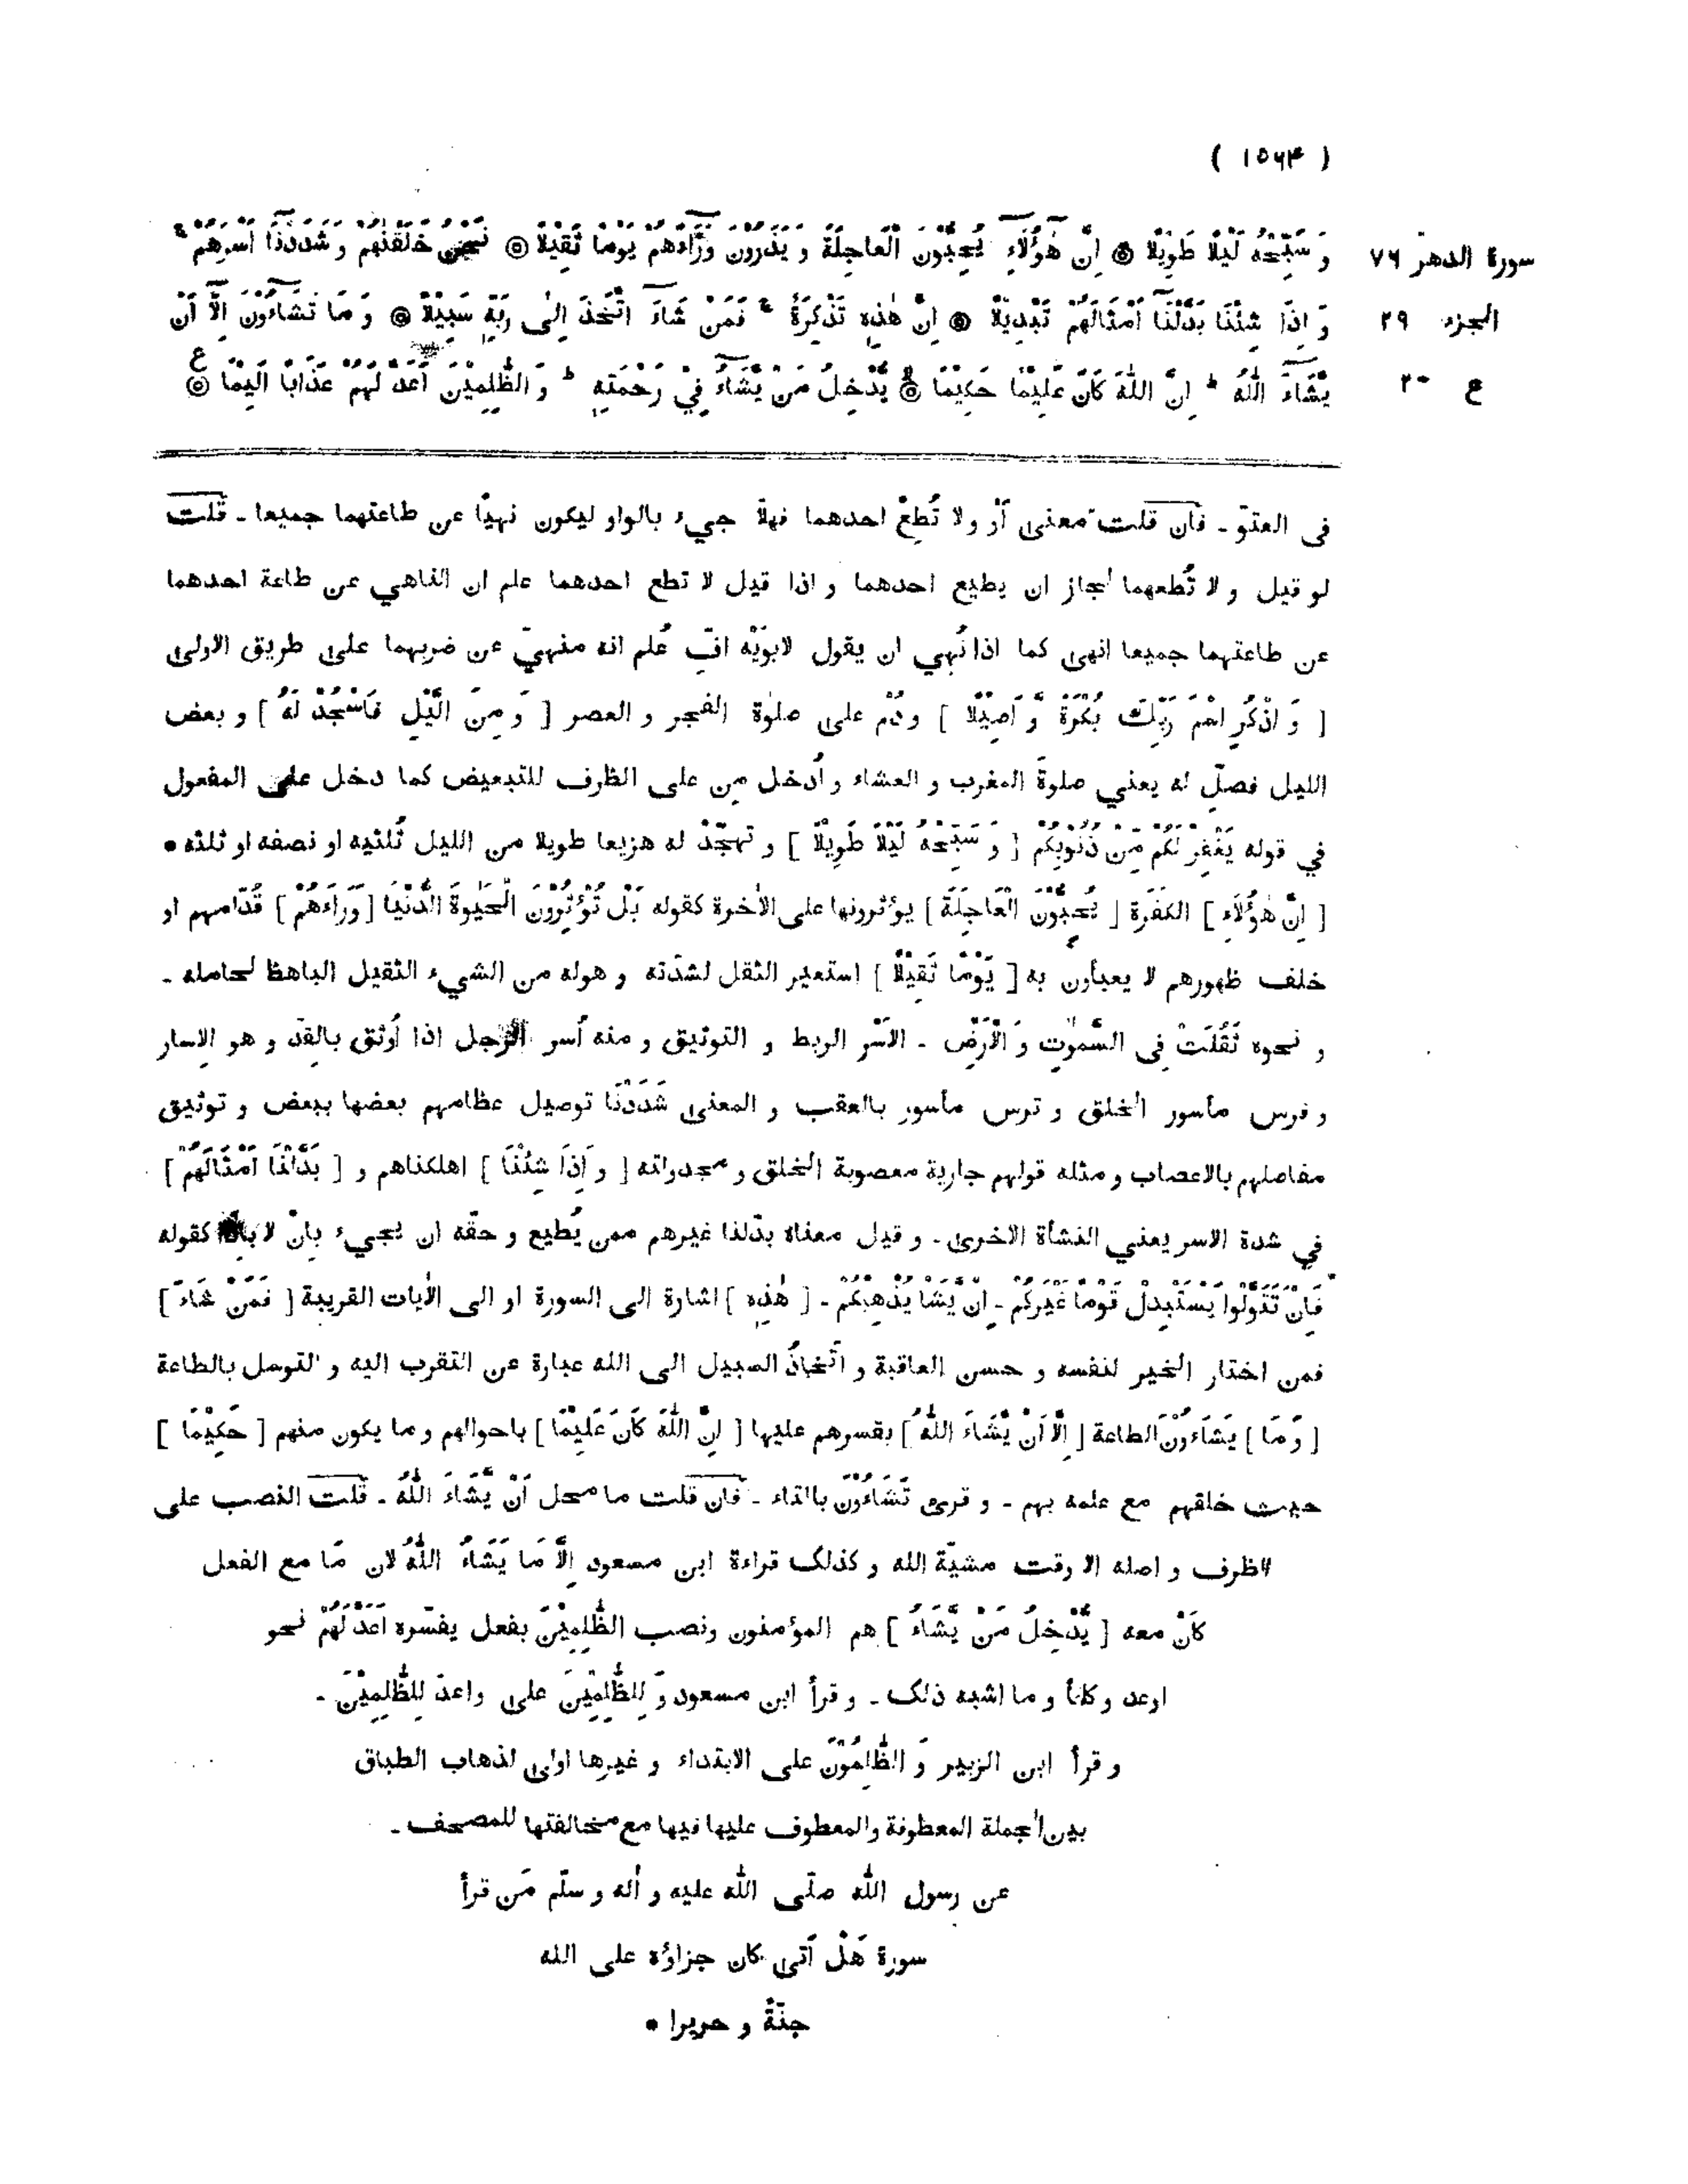 ( ١٥٦٤ )
سورة الدهر ٧٦
الجزء ٢٩
ع ٢٠
وَ سَبِّحْهُ لَيْلًا طَوِيْلًا ۞ اِنَّ هٰؤُلَاۤءِ يُحِبُّوْنَ الْعَاجِلَةَ وَ يَذَرُوْنَ وَرَاۤءَهُمْ يَوْمًا ثَقِيْلًا ۞ نَحْنُ خَلَقْنٰهُمْ وَ شَدَدْنَاۤ اَسْرَهُمْ ۚ
وَ اِذَا شِئْنَا بَدَّلْنَاۤ اَمْثَالَهُمْ تَبْدِيْلًا ۞ اِنَّ هٰذِهٖ تَذْكِرَةٌ ۚ فَمَنْ شَاۤءَ اتَّخَذَ اِلٰى رَبِّهٖ سَبِيْلًا ۞ وَ مَا تَشَاۤءُوْنَ اِلَّاۤ اَنْ
يَّشَاۤءَ اللّٰهُ ؕ اِنَّ اللّٰهَ كَانَ عَلِيْمًا حَكِيْمًا ۞ يُّدْخِلُ مَنْ يَّشَاۤءُ فِيْ رَحْمَتِهٖ ؕ وَ الظّٰلِمِيْنَ اَعَدَّ لَهُمْ عَذَابًا اَلِيْمًا ۞ ع
فى العتوّ ـ فان قلت معنى أَوْ ولا تُطِعْ احدهما فهلّا جيء بالواو ليكون نهيًا عن طاعتهما جميعا ـ قلت
لو قيل و لا تُطعهما لجاز ان يطيع احدهما و اذا قيل لا تطع احدهما علم ان الناهي عن طاعة احدهما
عن طاعتهما جميعا انهى كما اذا نُهي ان يقول لابَوَيْه افّ عُلم انه منهيّ عن ضربهما على طريق الاولى
[ وَ اذْكُرِ اسْمَ رَبِّكَ بُكْرَةً وَّ اَصِيْلًا ] ودُم على صلوٰة الفجر و العصر [ وَ مِنَ الَّيْلِ فَاسْجُدْ لَهٗ ] و بعض
الليل فصلّ له يعني صلوةَ المغرب و العشاء و أدخل مِن على الظرف للتبعيض كما دخل على المفعول
في قوله يَغْفِرْ لَكُمْ مِّنْ ذُنُوْبِكُمْ [ وَ سَبِّحْهُ لَيْلًا طَوِيْلًا ] و تهجّدْ له هزيعا طويلا من الليل ثُلثيه او نصفه او ثلثه •
[ اِنَّ هٰؤُلَاءِ ] الكفَرة [ يُحِبُّوْنَ الْعَاجِلَةَ ] يؤثرونها على الاٰخرة كقوله بَلْ تُؤْثِرُوْنَ الْحَيٰوةَ الدُّنْيَا [ وَرَاءَهُمْ ] قُدّامهم او
خلف ظهورهم لا يعبأون به [ يَوْمًا ثَقِيْلًا ] استعير الثقل لشدّته و هوله من الشيء الثقيل الباهظ لحامله ـ
و نحوه ثَقُلَتْ فِى السَّمٰوٰتِ وَ الْاَرْضِ ـ الاَسْر الربط و التوثيق و منه أسر الرجل اذا أُوثق بالقدّ و هو الاِسار
و فرس مأسور الخلق و ترس مأسور بالعقب و المعنى شَدَدْنَا توصيل عظامهم بعضها ببعض و توثيق
مفاصلهم بالاعصاب و مثله قولهم جارية معصوبة الخلق و مجدولته [ وَ اِذَا شِئْنَا ] اهلكناهم و [ بَدَّلْنَا اَمْثَالَهُمْ ]
في شدة الاسر يعني النشأة الاخرى ـ و قيل معناه بدّلنا غيرهم ممن يُطيع و حقّه ان يجيء بانْ لا باذا كقوله
فَاِنْ تَتَوَلَّوْا يَسْتَبْدِلْ قَوْمًا غَيْرَكُمْ ـ اِنْ يَّشَا يُذْهِبْكُمْ ـ [ هٰذِهٖ ] اشارة الى السورة او الى الاٰيات القريبة [ فَمَنْ شَاءَ ]
فمن اختار الخير لنفسه و حسن العاقبة و اتّخاذُ السبيل الى الله عبارة عن التقرب اليه و التوسل بالطاعة
[ وَ مَا ] يَشَاءُوْنَ الطاعة [ اِلَّا اَنْ يَّشَاءَ اللّٰهُ ] بقسرهم عليها [ اِنَّ اللّٰهَ كَانَ عَلِيْمًا ] باحوالهم و ما يكون منهم [ حَكِيْمًا ]
حيث خلقهم مع علمه بهم ـ و قرى تَشَاءُوْنَ بالتاء ـ فان قلت ما محل اَنْ يَّشَاءَ اللّٰهُ ـ قلت النصب على
الظرف و اصله الا وقت مشيّة الله و كذلك قراءة ابن مسعود اِلَّا مَا يَشَاءُ اللّٰهُ لان مَا مع الفعل
كَاَنْ معه [ يُّدْخِلُ مَنْ يَّشَاءُ ] هم المؤمنون ونصب الظّٰلِمِيْنَ بفعل يفسّره اَعَدَّ لَهُمْ نحو
اوعد و كافأ و ما اشبه ذلك ـ و قرأ ابن مسعود وَ لِلظّٰلِمِيْنَ على واعدّ لِلظّٰلِمِيْنَ ـ
و قرأ ابن الزبير وَ الظّٰلِمُوْنَ على الابتداء و غيرها اولى لذهاب الطباق
بين الجملة المعطوفة والمعطوف عليها فيها مع مخالفتها للمصحف ـ
عن رسول الله صلّى الله عليه و اٰله و سلّم مَن قرأ
سورة هَلْ اَتى كان جزاؤه على الله
جنّةً و حريرا •